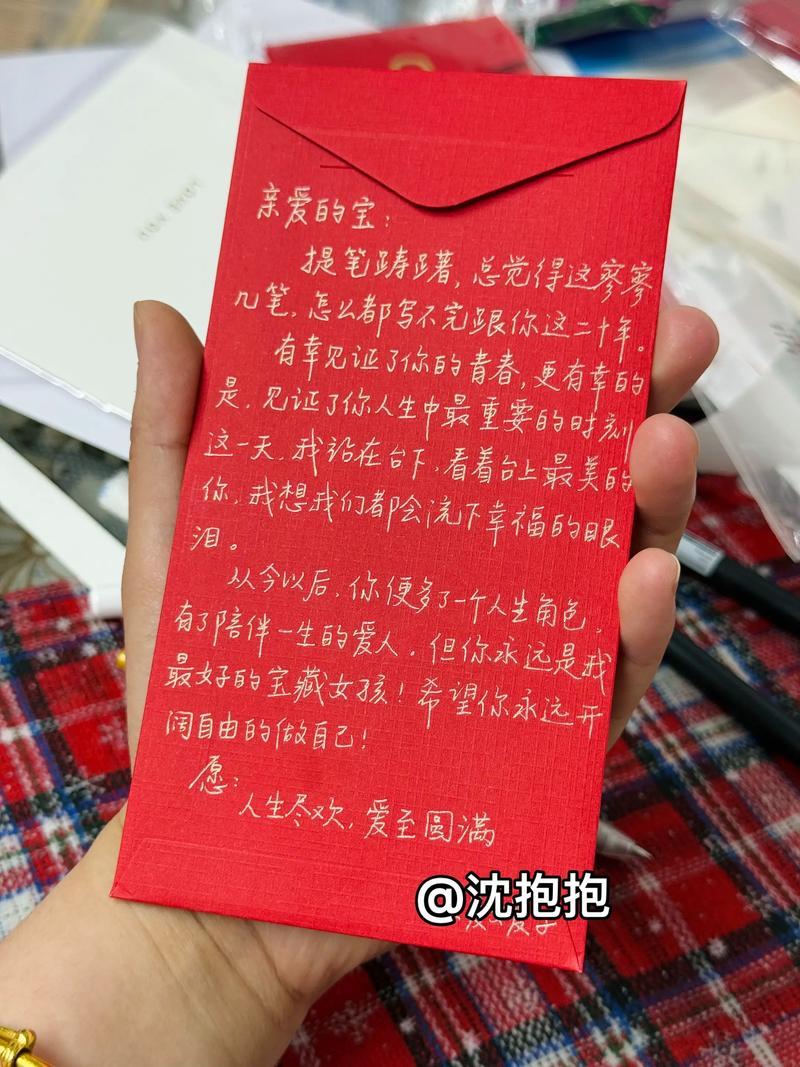 亲爱的宝：
提笔踌躇，总觉得这寥寥
几笔，怎么都写不完跟你这二十年。
有幸见证了你的青春，更有幸的
是，见证了你人生中最重要的时刻
这一天，我站在台下，看着台上最美的
你，我想我们都会流下幸福的眼
泪。
从今以后，你便多了一个人生角色，
有了陪伴一生的爱人。但你永远是我
最好的宝藏女孩！希望你永远开
阔自由的做自己！
愿：
人生尽欢，爱至圆满
@沈抱抱